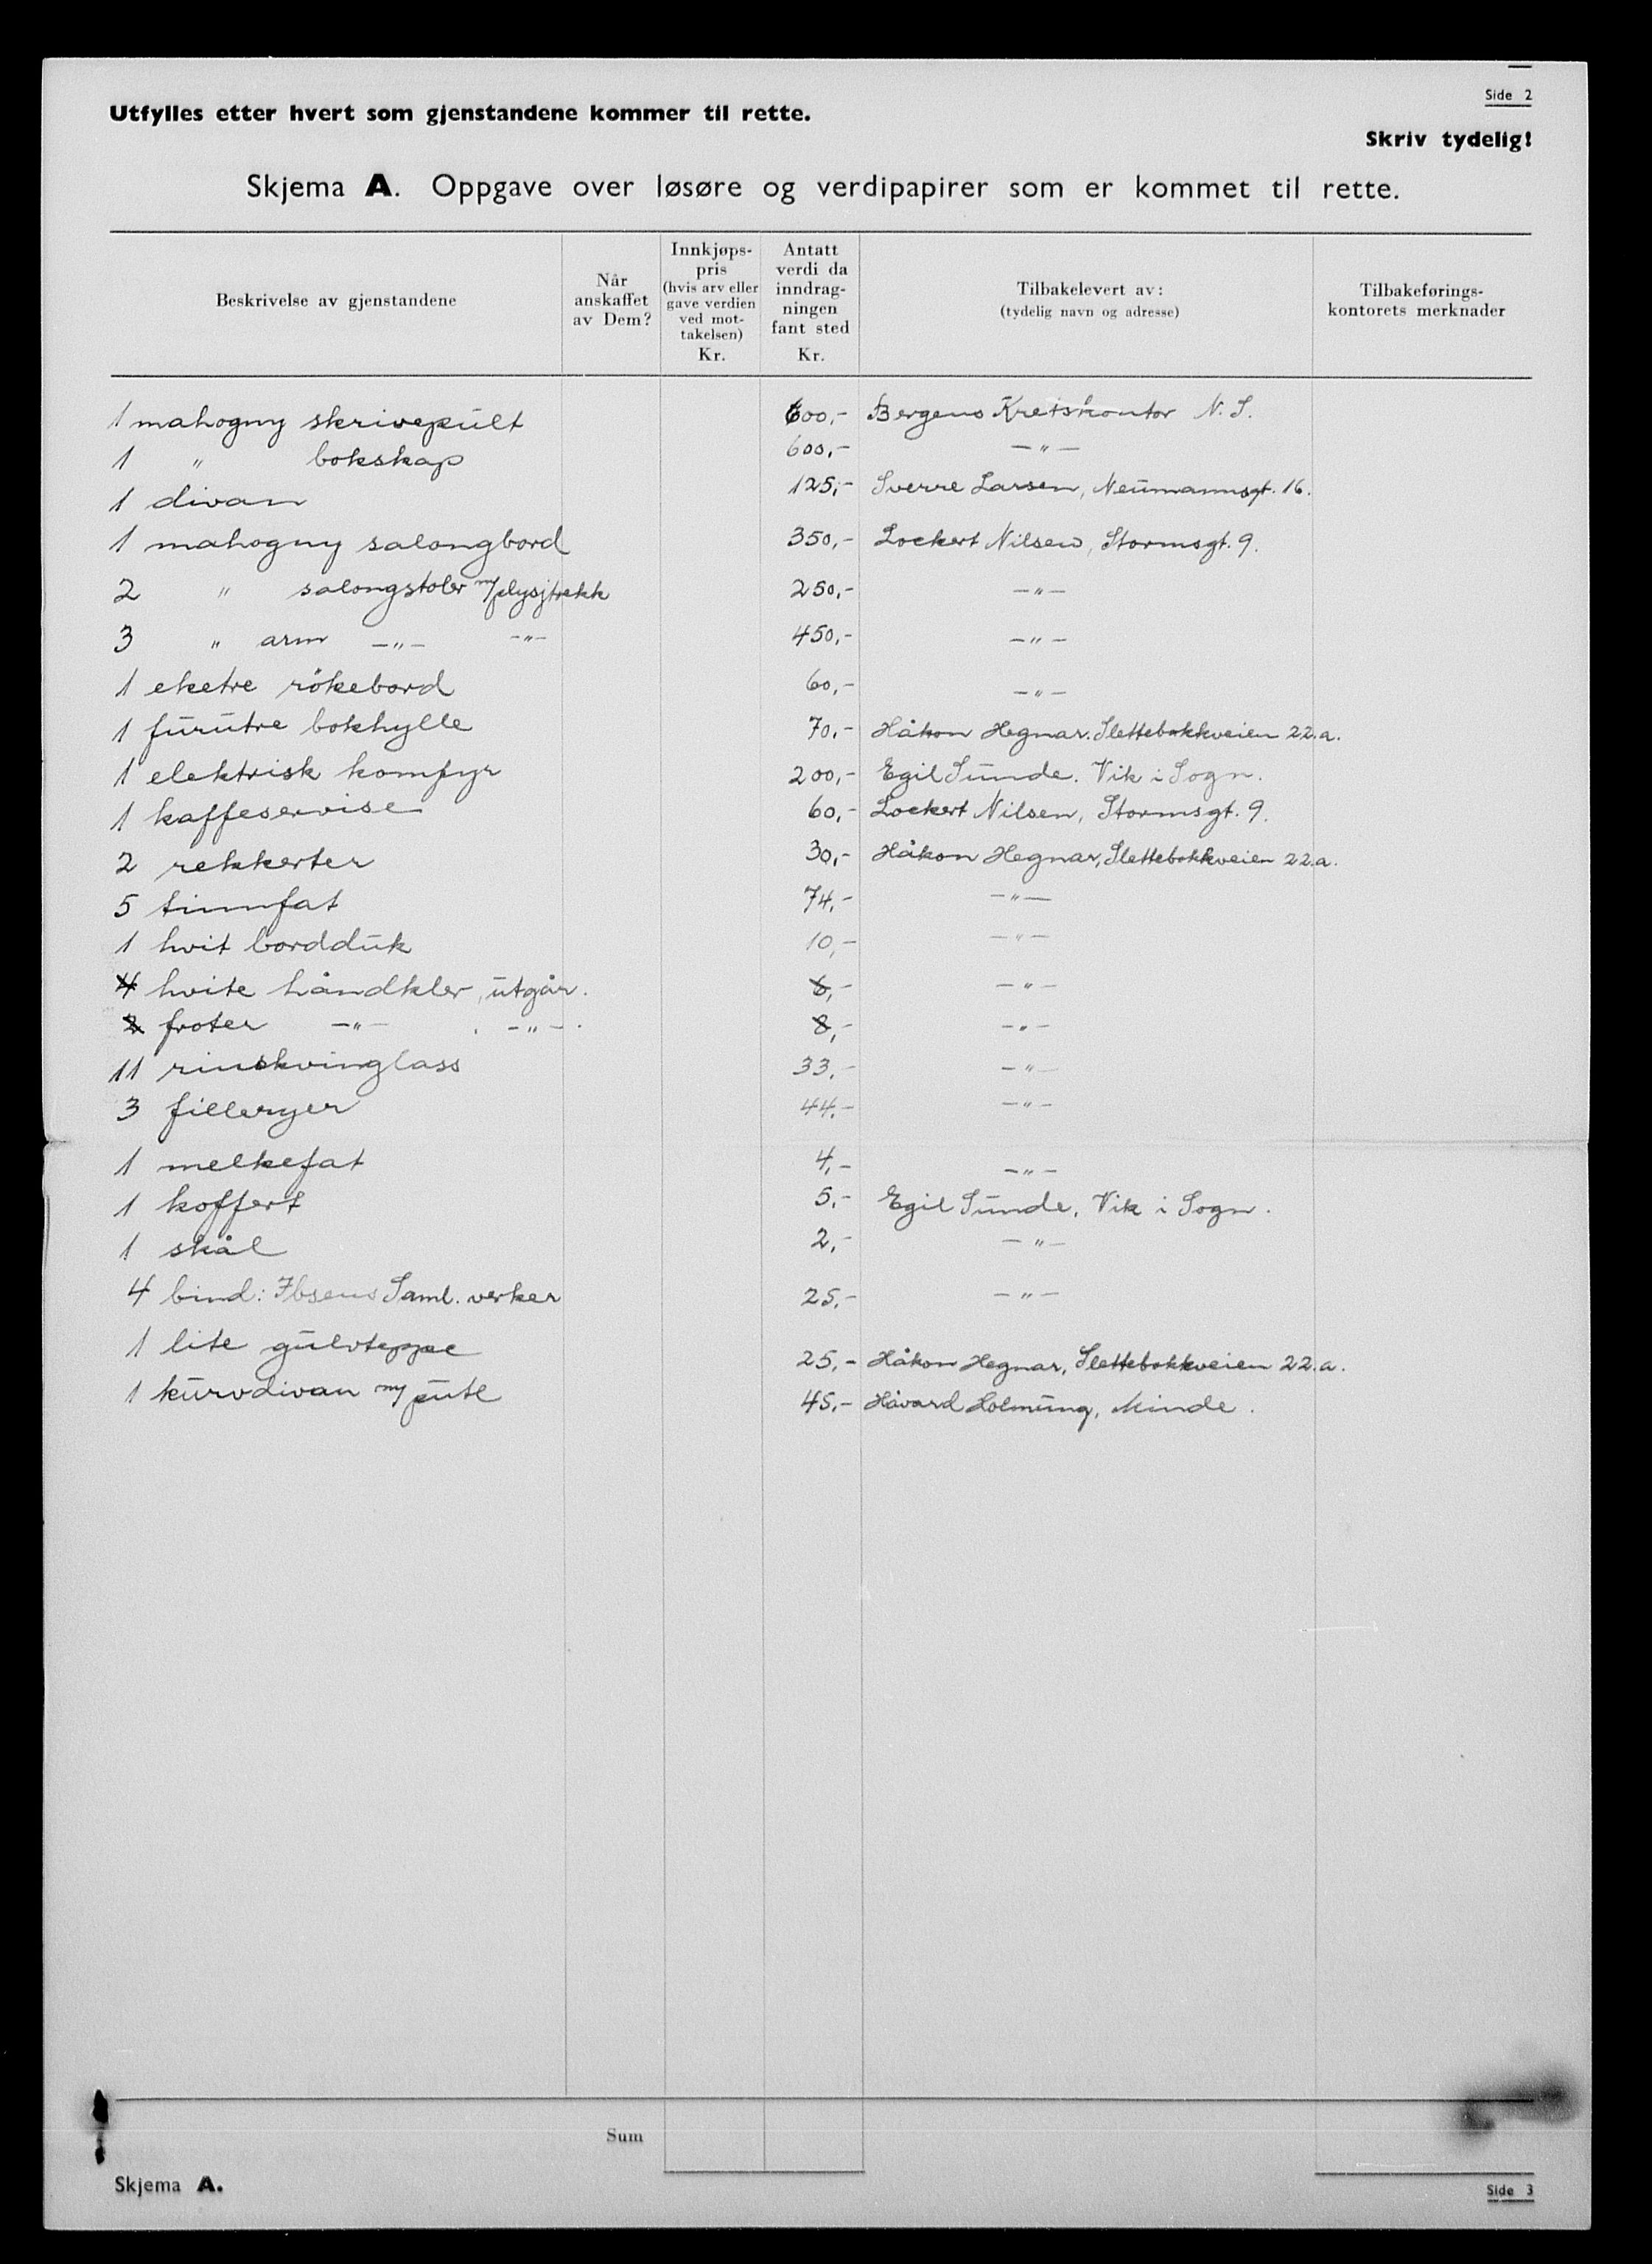 Side 2
Utfylles etter hvert som gjenstandene kommer til rette.
Skriv tydelig!
Skjema A. Oppgave over løsøre og verdipapirer som er kommet til rette.
Beskrivelse av gjenstandene
Når anskaffet av Dem?
Innkjøps-pris (hvis arv eller gave verdien ved mot-takelsen) Kr.
Antatt verdi da inndrag-ningen fant sted Kr.
Tilbakelevert av: (tydelig navn og adresse)
Tilbakeførings-kontorets merknader
1 mahogny skrivepult 600,- Bergens Kretskontor N. S.
1 " bokskap 600,- -"-
1 divan 125,- Sverre Larsen, Neumannsgt. 16.
1 mahogny salongbord 350,- Lockert Nilsen, Stormsgt. 9.
2 " salongstoler m/plysjtrekk 250,- -"-
3 " arm -"- -"- 450,- -"-
1 eketre rökebord 60,- -"-
1 furutre bokhylle 70,- Håkon Hegnar. Slettebakkveien 22.a.
1 elektrisk komfyr 200,- Egil Sunde. Vik i Sogn.
1 kaffeservise 60,- Lockert Nilsen, Stormsgt. 9.
2 rekkerter 30,- Håkon Hegnar, Slettebakkveien 22.a.
5 tinnfat 74,- -"-
1 hvit bordduk 10,- -"-
4 hvite håndkler, utgår. 6,- -"-
2 froter -"- . -"- . 8,- -"-
11 rinskvinglass 33,- -"-
3 filleryer 44,- -"-
1 melkefat 4,- -"-
1 koffert 5,- Egil Sunde, Vik i Sogn.
1 skål 2,- -"-
4 bind: Ibsens Saml. verker 25,- -"-
1 lite gulvteppe 25,- Håkon Hegnar, Slettebakkveien 22.a.
1 kurvdivan m/ pute 45,- Håvard Holmung, Minde.
Sum
Skjema A.
Side 3